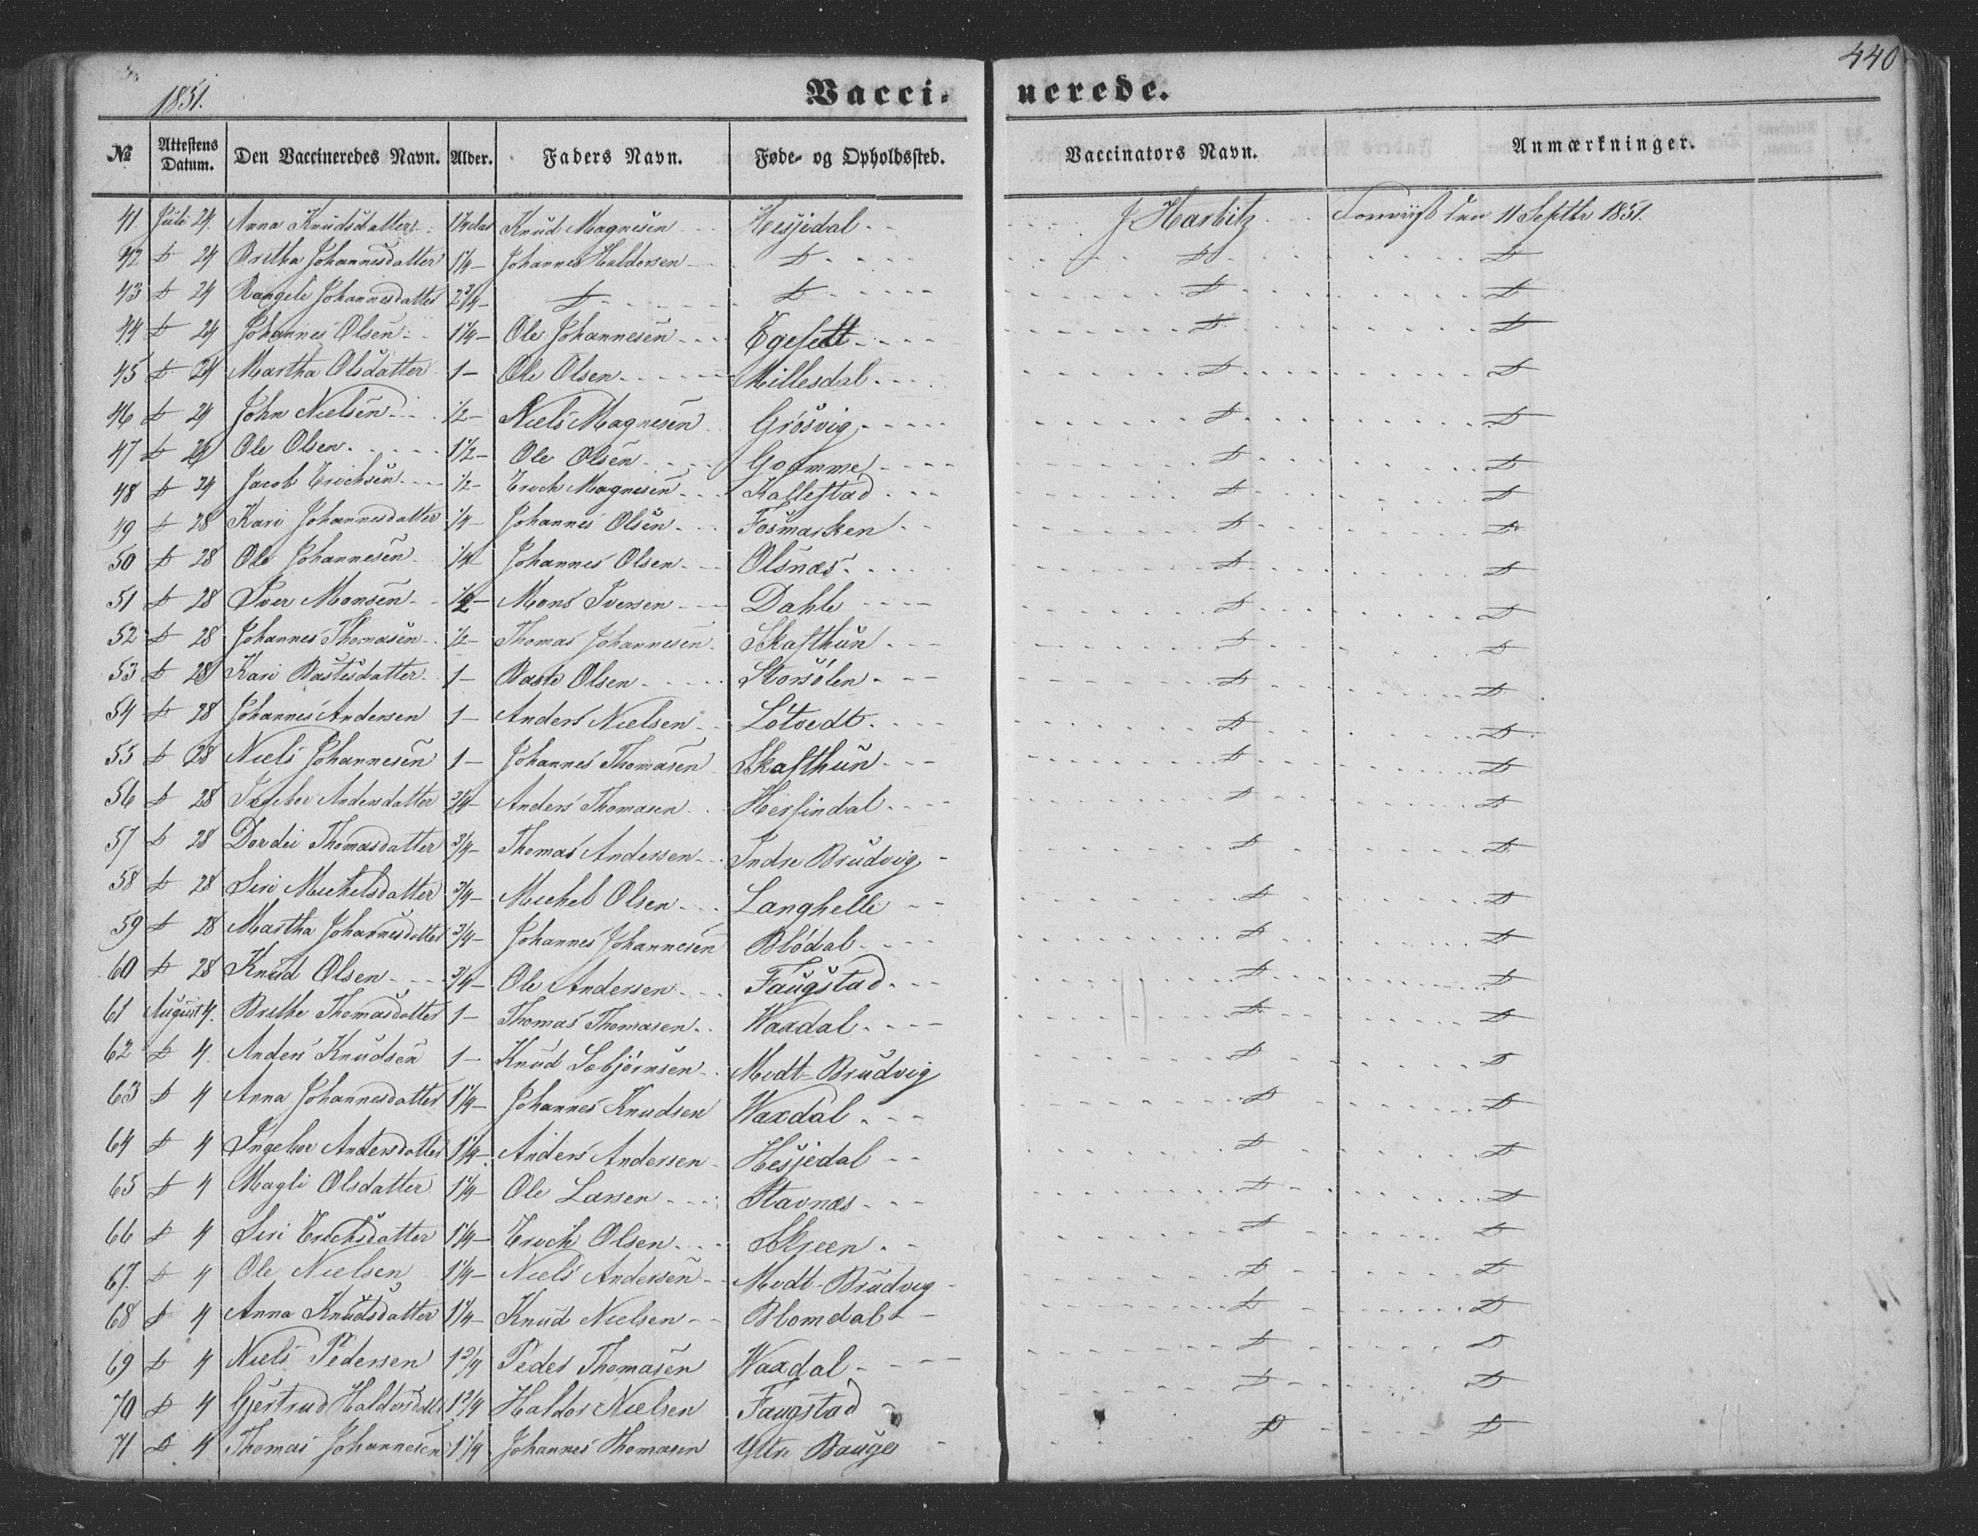 440
1851.
Vaccinerede.
No Attestens Datum. Den Vaccineredes Navn. Alder. Faders Navn. Føde- og Opholdssted. Vaccinators Navn. Anmærkninger.
41 Juli 24. Anna Knudsdatter 1¼ Knud Magnesen Hesjedal J Harbitz den 11 Septbr 1851.
42 D 24 Britha Johannesdatter 1¼ Johannes Haldersen D D D
43 D 24 Rangele Johannesdatter 2¾ D D D D
44 D 24 Johannes Olsen 1¼ Ole Johannesen Egesett D D
45 D 24 Martha Olsdatter 1 Ole Olsen Millesdal D D
46 D 24 John Nielsen ½ Niels Magnesen Grøsvig D D
47 D 24 Ole Olsen 1½ Ole Olsen Gramme D D
48 D 24 Jacob Erichsen ½ Erich Magnesen Kallestad D D
49 D 28 Kari Johannesdatter ¼ Johannes Olsen Fosmarken D D
50 D 28 Ole Johannesen ¼ Johannes Olsen Olsnæs D D
51 D 28 Iver Monsen ½ Mons Iversen Dahle D D
52 D 28 Johannes Thomasen ½ Thomas Johannesen Skafthun D D
53 D 28 Kari Bastesdatter 1 Baste Olsen Storsølen D D
54 D 28 Johannes Andersen 1 Anders Nielsen Løtvedt D D
55 D 28 Niels Johannesen 1 Johannes Thomasen Skafthun D D
56 D 28 Ingebor Andersdatter ¾ Anders Thomasen Herfindal D D
57 D 28 Dordei Thomasdatter ¾ Thomas Andersen Indre Brudvig D D
58 D 28 Siri Michelsdatter ¾ Michel Olsen Langhelle D D
59 D 28 Martha Johannesdatter ¾ Johannes Johannesen Blødal D D
60 D 28 Knud Olsen ¾ Ole Andersen Faugstad D D
61 August 4. Brithe Thomasdatter 1 Thomas Thomasen Waxdal D D
62 D 4. Anders Knudsen 1 Knud Sebjørnsen Medt-Brudvig D D
63 D 4 Anna Johannesdatter 1¼ Johannes Knudsen Waxdal D D
64 D 4 Ingebor Andersdatter 1¼ Anders Andersen Hesjedal D D
65 D 4 Magli Olsdatter 1¼ Ole Larsen Stavnæs D D
66 D 4 Siri Erichsdatter 1¼ Erich Olsen Skreen D D
67. D 4 Ole Nielsen 1¼ Niels Andersen Medt-Brudvig D D
68 D 4 Anna Knudsdatter 1¼ Knud Nielsen Blomdal D D
69 D 4 Niels Pedersen 1¾ Peder Thomasen Waxdal D D
70 D 4 Gjertrud Haldorsdatter 1¾ Haldor Nielsen Faugstad D D
71 D 4 Thomas Johannesen 1¼ Johannes Thomasen Yttre Bauge D D